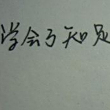 学会了知足